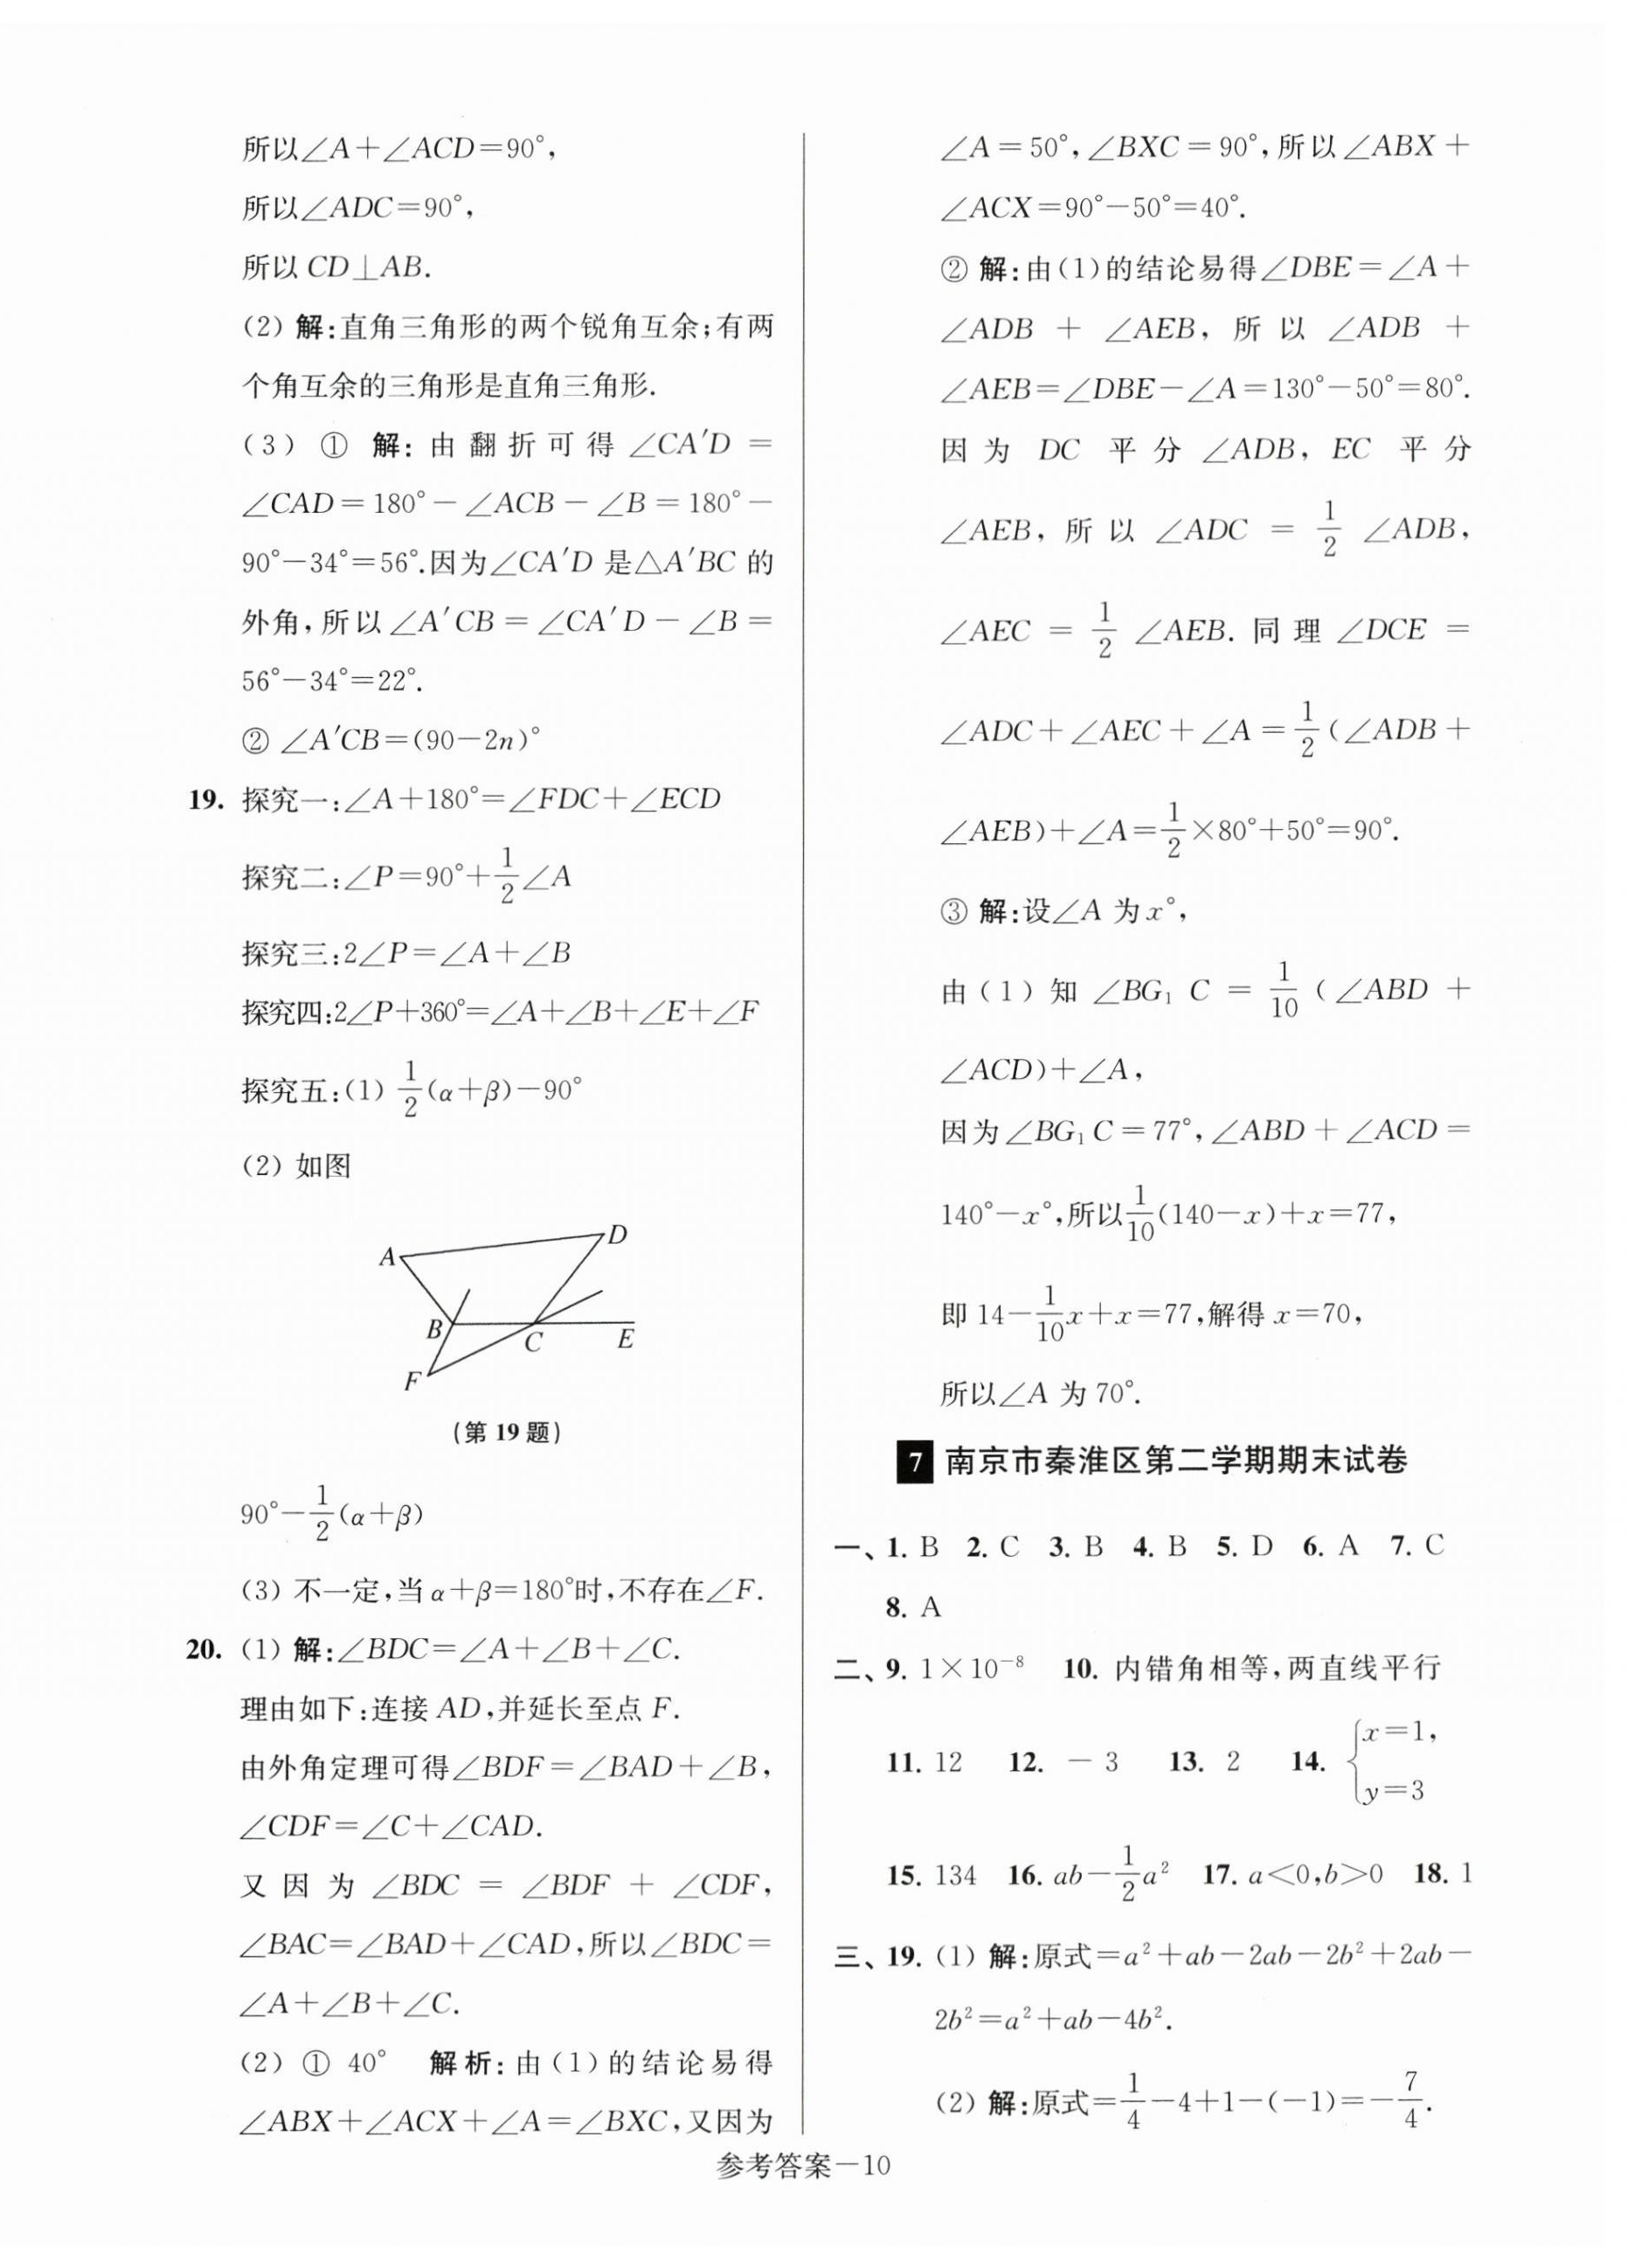 所以∠A+∠ACD=90°,
所以∠ADC=90°,
所以 CD⊥AB.
(2) 解:直角三角形的两个锐角互余;有两
个角互余的三角形是直角三角形.
(3) ① 解: 由翻折可得 ∠CA′D =
∠CAD=180°-∠ACB-∠B=180°-
90°-34°=56°.因为∠CA′D 是△A′BC 的
外角,所以∠A′CB=∠CA′D-∠B=
56°-34°=22°.
② ∠A′CB=(90-2n)°
19. 探究一:∠A+180°=∠FDC+∠ECD
探究二:∠P=90°+1/2∠A
探究三:2∠P=∠A+∠B
探究四:2∠P+360°=∠A+∠B+∠E+∠F
探究五:(1) 1/2(α+β)-90°
(2) 如图
A
D
B
C
E
F
(第 19 题)
90°-1/2(α+β)
(3) 不一定,当α+β=180°时,不存在∠F.
20. (1) 解:∠BDC=∠A+∠B+∠C.
理由如下:连接 AD,并延长至点 F.
由外角定理可得∠BDF=∠BAD+∠B,
∠CDF=∠C+∠CAD.
又因为 ∠BDC = ∠BDF + ∠CDF,
∠BAC=∠BAD+∠CAD,所以∠BDC=
∠A+∠B+∠C.
(2) ① 40° 解析: 由(1)的结论易得
∠ABX+∠ACX+∠A=∠BXC,又因为
∠A=50°,∠BXC=90°,所以∠ABX+
∠ACX=90°-50°=40°.
② 解:由(1)的结论易得∠DBE=∠A+
∠ADB + ∠AEB, 所以 ∠ADB +
∠AEB=∠DBE-∠A=130°-50°=80°.
因为 DC 平分 ∠ADB, EC 平分
∠AEB, 所以 ∠ADC = 1/2 ∠ADB,
∠AEC = 1/2 ∠AEB. 同理 ∠DCE =
∠ADC+∠AEC+∠A=1/2(∠ADB+
∠AEB)+∠A=1/2×80°+50°=90°.
③ 解:设∠A 为x°,
由(1)知 ∠BG₁C = 1/10(∠ABD +
∠ACD)+∠A,
因为∠BG₁C=77°,∠ABD+∠ACD=
140°-x°,所以1/10(140-x)+x=77,
即 14-1/10x+x=77,解得 x=70,
所以∠A 为 70°.
7 南京市秦淮区第二学期期末试卷
一、1. B 2. C 3. B 4. B 5. D 6. A 7. C
8. A
二、9. 1×10⁻⁸ 10. 内错角相等,两直线平行
11. 12 12. -3 13. 2 14. {x=1,
y=3
15. 134 16. ab-1/2a² 17. a<0,b>0 18. 1
三、19. (1) 解:原式=a²+ab-2ab-2b²+2ab-
2b²=a²+ab-4b².
(2) 解:原式=1/4-4+1-(-1)=-7/4.
参考答案-10